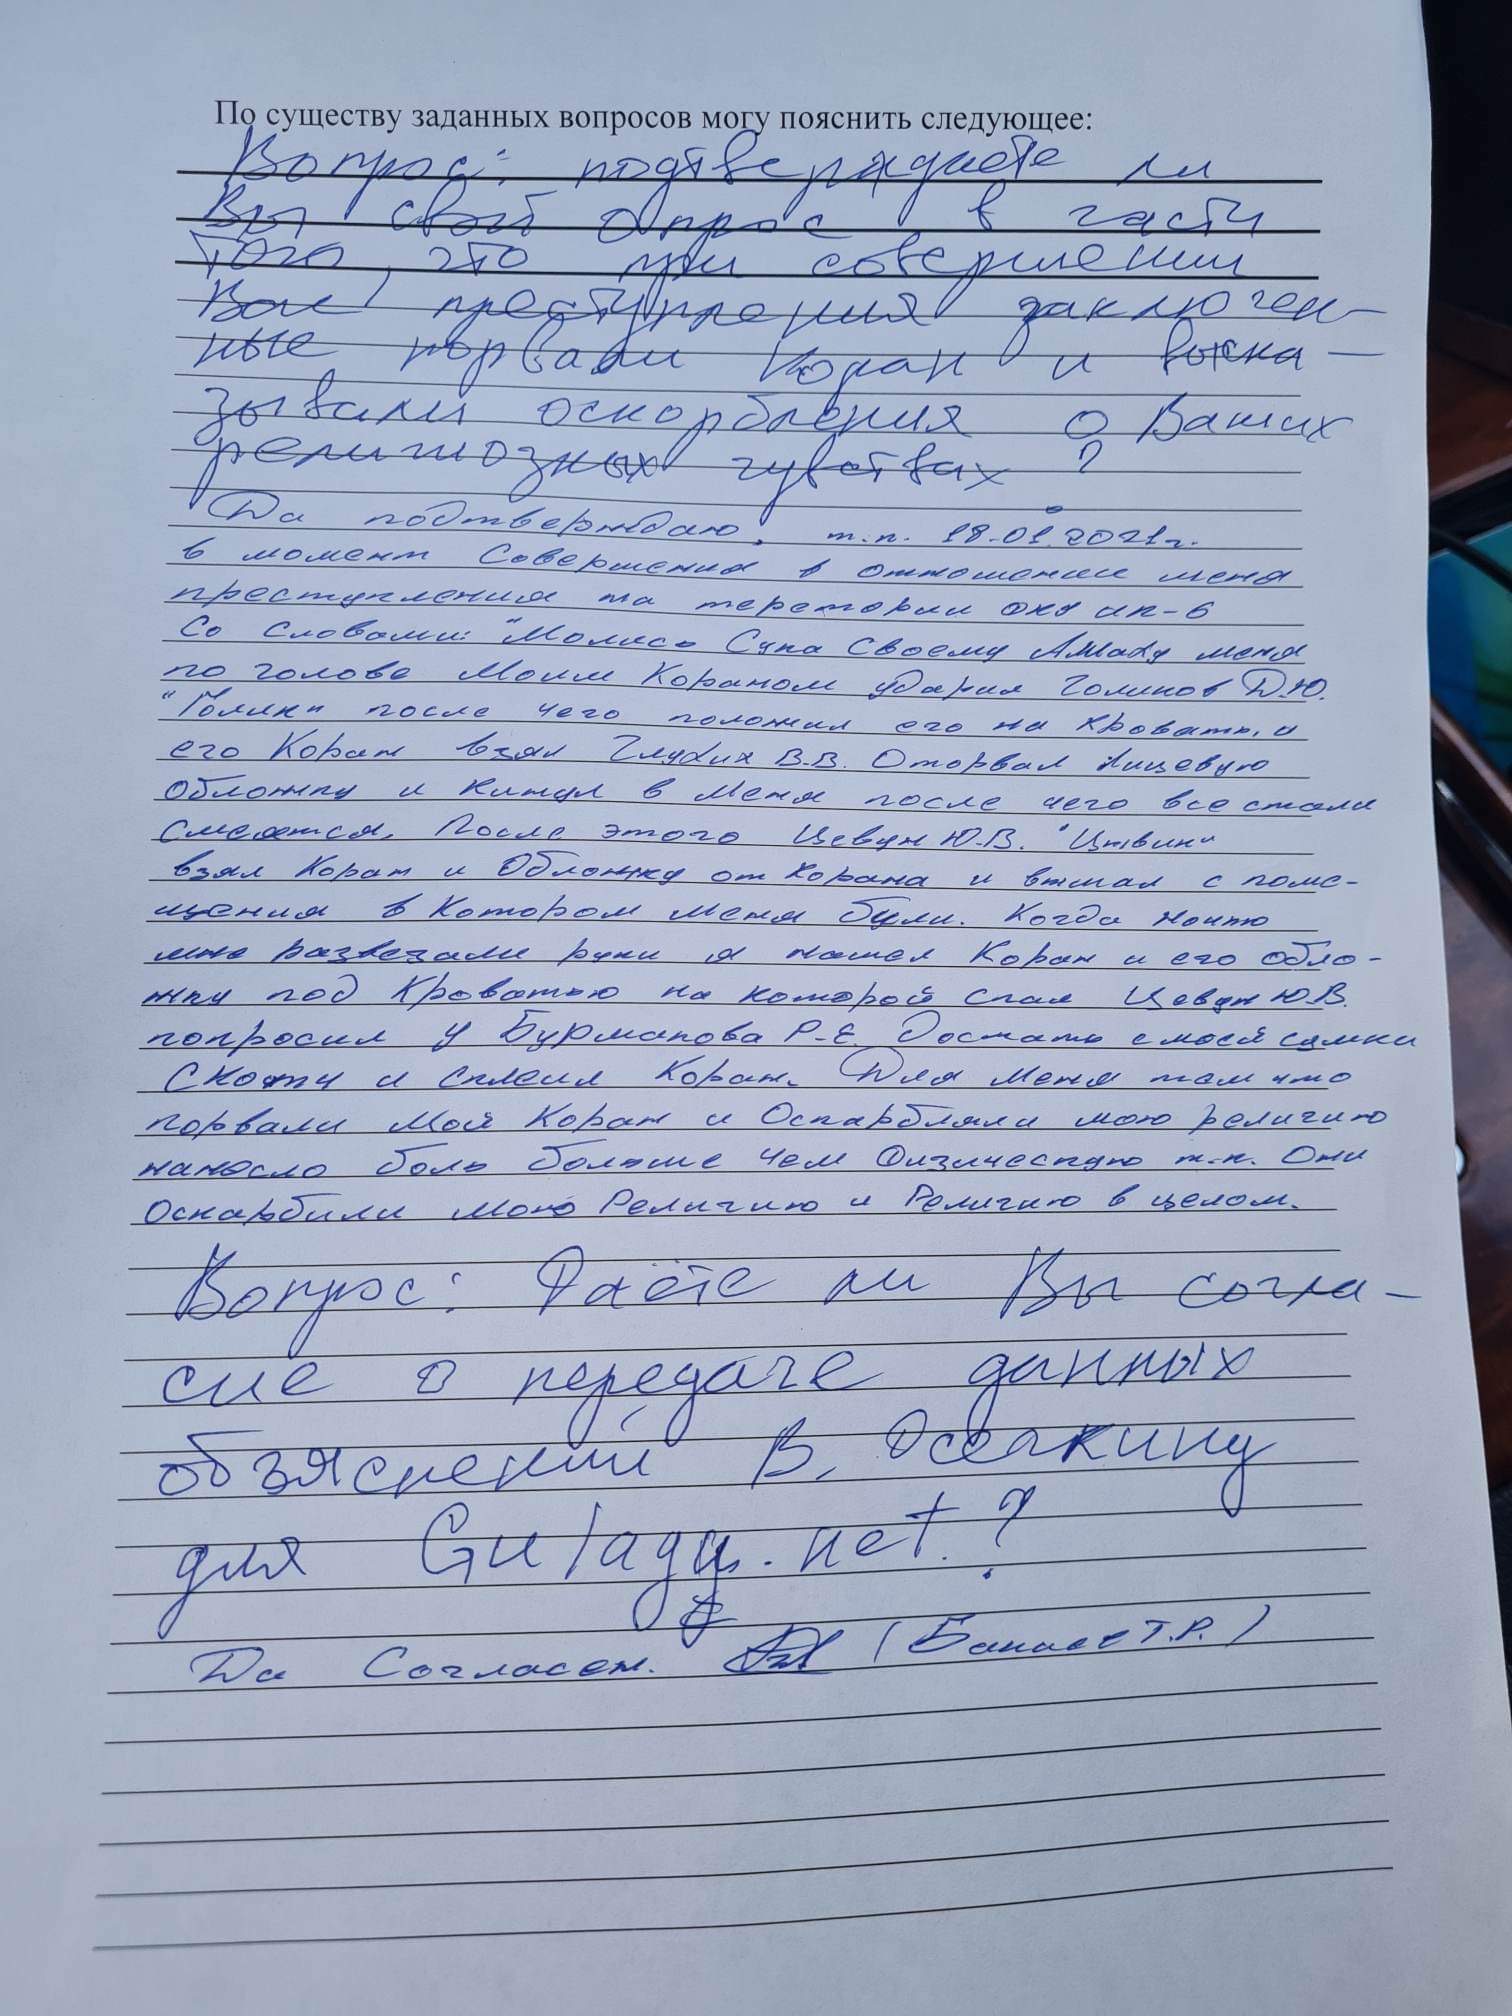 По существу заданных вопросов могу пояснить следующее:
Вопрос: подтверждаете ли
Вы свой опрос в части
того, что при совершении
преступления заключен-
ные порвали Коран и выска-
зывали оскорбления о Ваших
религиозных чувствах?
Да подтверждаю, т.к. 18.01.2021г.
в момент Совершения в отношении меня
преступления на
Со словами: "Молись Сука Своему Аллаху меня
по голове Моим Кораном ударил Голиков Д.Ю.
"Голик" после чего положил его на кровать, и
его Коран взял Глухих В.В. Оторвал лицевую
Обложку и кинул в меня после чего все стали
смеятся. После этого Цевун Ю.В.
взял Коран и Обложку от Корана и с поме-
щения в Котором меня били. Когда
мне развезали руки я нашел Коран и его обло-
жку под Кроватью на которой спал Цевун Ю.В.
попросил у Бурмакова Р.Е. Достать с моей сумки
Скотч и склеил Коран. Для меня том что
порвали Мой Коран и Оскарбляли мою религию
нанесло боль больше чем Физическую т.к. Они
Оскарбили мою Религию и Религию в целом.
Вопрос: Даёте ли Вы согла-
сие о передаче данных
обзяснений В. Осечкину
для Gulagu.net.?
Да Согласен. Т.Р.)